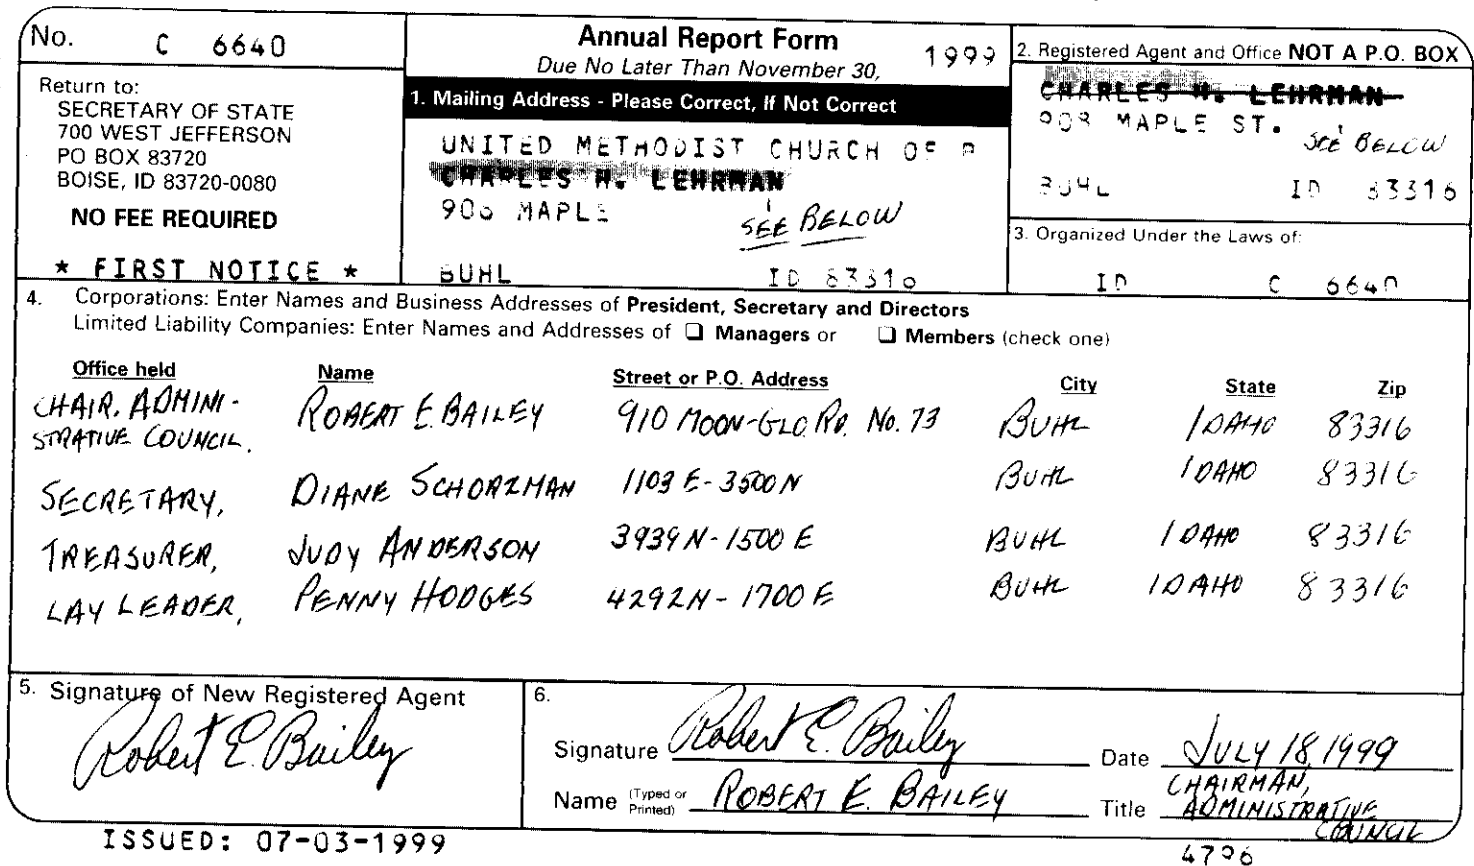 No. C 6640
Return to:
SECRETARY OF STATE
700 WEST JEFFERSON
PO BOX 83720
BOISE, ID 83720-0080
NO FEE REQUIRED
* FIRST NOTICE *
Annual Report Form
Due No Later Than November 30, 1999
1. Mailing Address - Please Correct, If Not Correct
UNITED METHODIST CHURCH OF
CHARLES H. LEHRMAN
908 MAPLE SEE BELOW
BUHL ID 83316
2. Registered Agent and Office NOT A P.O. BOX
CHARLES H. LEHRMAN
908 MAPLE ST. SEE BELOW
BUHL ID 83316
3. Organized Under the Laws of:
ID C 6640
4. Corporations: Enter Names and Business Addresses of President, Secretary and Directors
Limited Liability Companies: Enter Names and Addresses of ❏ Managers or ❏ Members (check one)
Office held Name Street or P.O. Address City State Zip
CHAIR. ADMINI- ROBERT E. BAILEY 910 MOON-GLO. RD. No. 73 BUHL IDAHO 83316
STRATIVE COUNCIL.
SECRETARY, DIANE SCHORZMAN 1103 E-3500 N BUHL IDAHO 83316
TREASURER, JUDY ANDERSON 3939 N-1500 E BUHL IDAHO 83316
LAY LEADER, PENNY HODGES 4292 N-1700 E BUHL IDAHO 83316
5. Signature of New Registered Agent
Robert E. Bailey
6.
Signature Robert E. Bailey Date JULY 18, 1999
Name (Typed or Printed) ROBERT E. BAILEY Title CHAIRMAN,
ADMINISTRATIVE
COUNCIL
ISSUED: 07-03-1999
4796